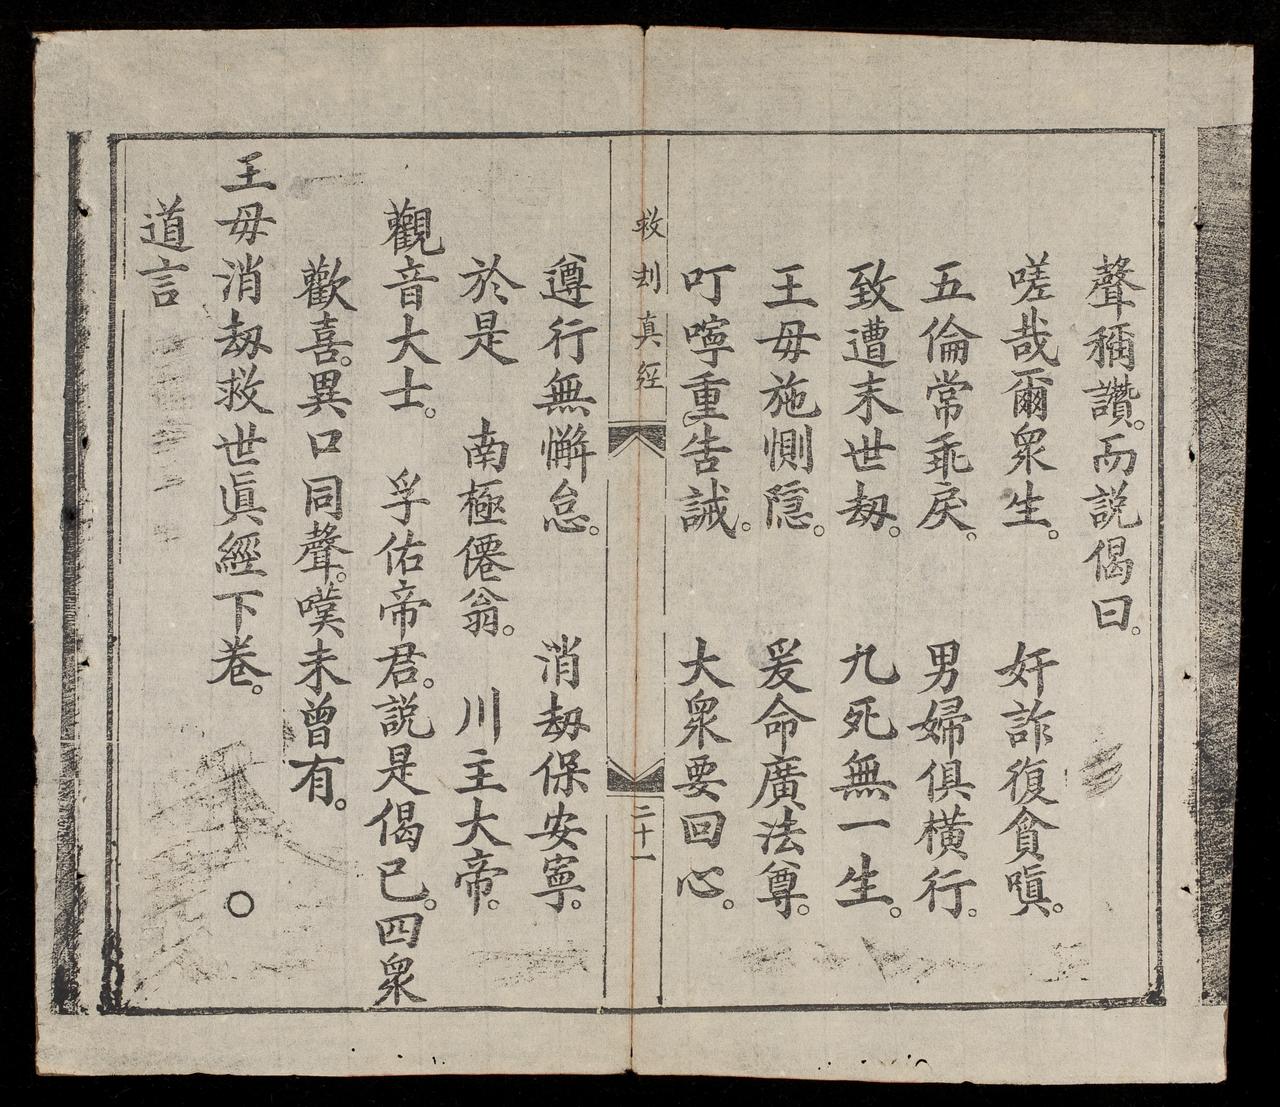 聲稱讚。而説偈曰。
嗟哉爾衆生。 奸詐復貪嗔。
五倫常乖戾。 男婦俱橫行。
致遭末世刼。 九死無一生。
王母施惻隱。 爰命廣法尊。
叮嚀重告誡。 大衆要回心。
救刦真經 二十一
遵行無懈怠。 消刼保安寧。
於是 南極僊翁。 川主大帝。
觀音大士。 孚佑帝君。説是偈已。四衆
歡喜。異口同聲。嘆未曾有。
王母消刼救世眞經下卷。 ○
道言